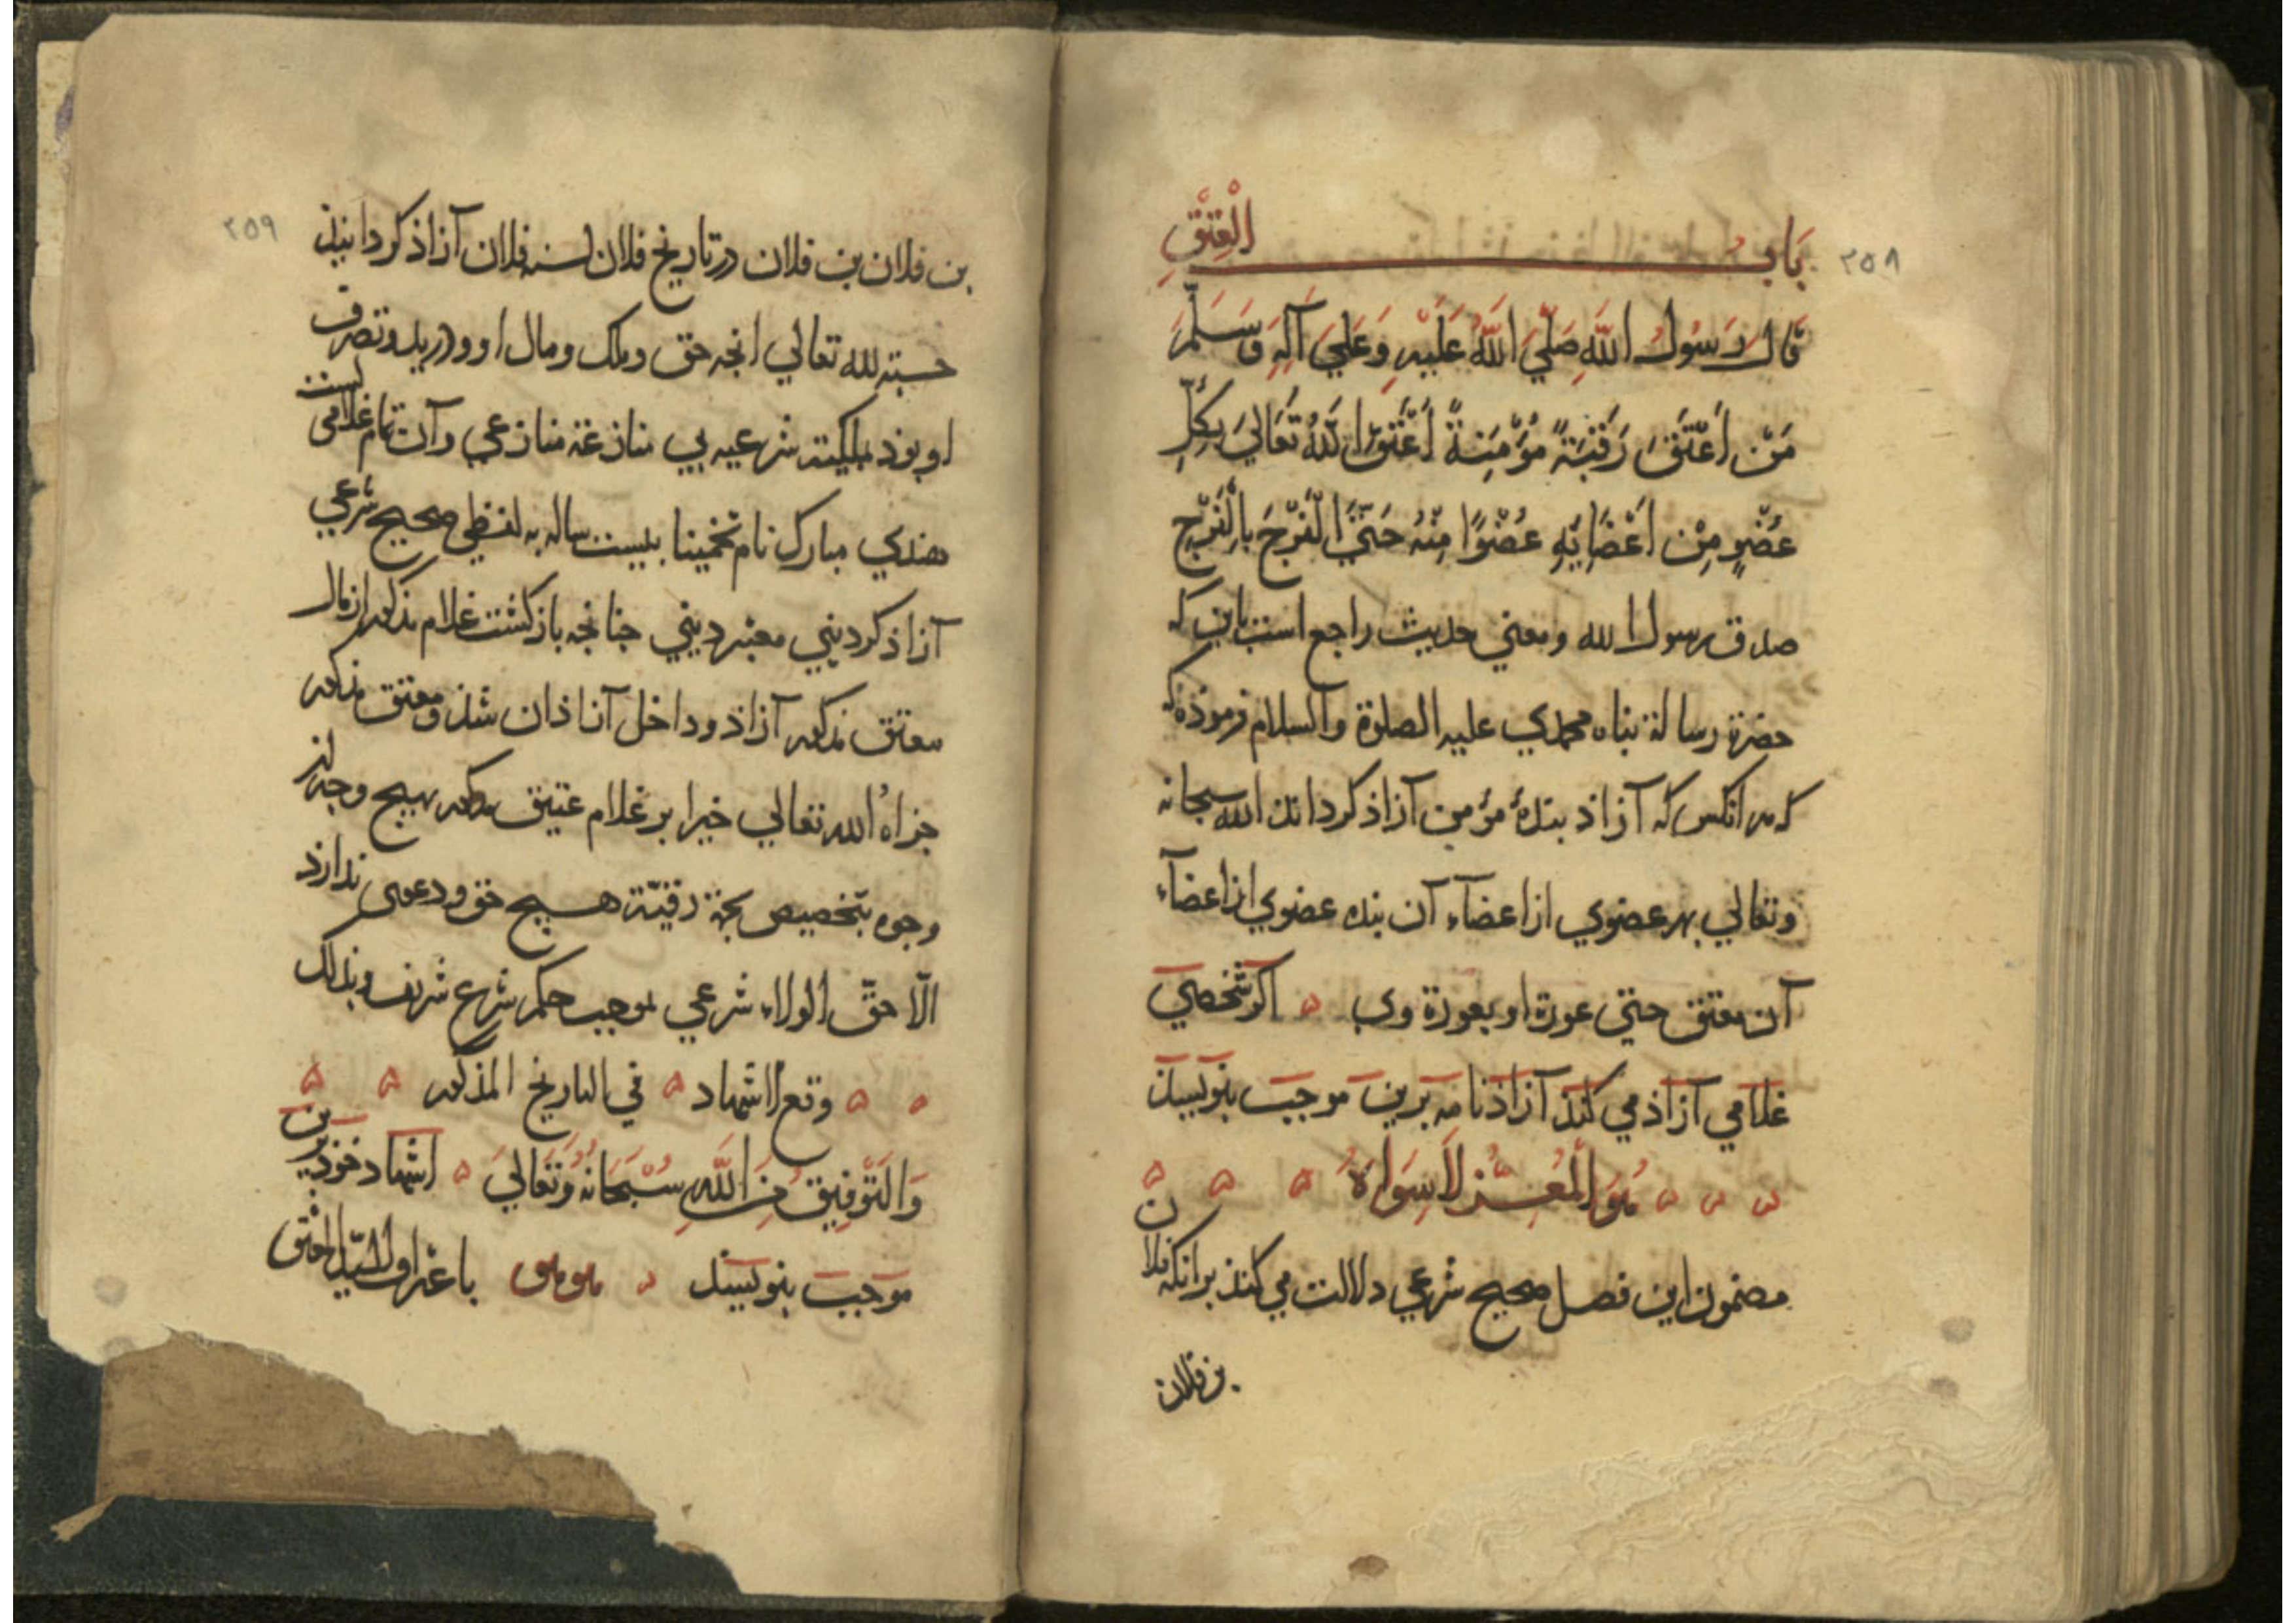 ٢٥٨
بَابُ الْعِتْقِ
قَالَ رَسُولُ اللَّهِ صَلَّيَ اللَّهُ عَلَيْهِ وَعَلَيَ آلِهِ وَسَلَّمَ
مَنْ اَعْتَقَ رَقَبَةً مُؤْمِنَةً اَعْتَقَ اللَّهُ تَعَالَيَ بِكُلِّ
عُضْوٍ مِنْ اَعْضَايَهِ عُضْوًا مِنْهُ حَتَّيَ الْفَرْجَ بِالْفَرْجِ
صدق رسول الله ومعني حديث راجع است باين كه
حضرة رسالة بناه محمدي عليه الصلوة والسلام فرموذه كه
كه هر انكس كه آزاذ بندهٔ مؤمن آزاذ كرداند الله سبحانه
وتعالي بهر عضوي از اعضآء آن بنده عضوي از اعضآء
آن معتق حتي عورة او بعورة وي اكر شخصي
غلامي آزاذ مي كنذ آزاذنامه برين موجب بنويسيذ
هُوَ الْمُعِزُّ لاَ سِوَاهُ
مضمون اين فصل صحيح شرعي دلالت مي كنذ برانكه فلان
بن فلان
٢٥٩
بن فلان بن فلان در تاريخ فلان لسنه فلان آزاذ كردانيذ
حسبة لله تعالي انجه حق وملك ومال او ودر يد وتصرف
او بوذ بملكية شرعيه بي منازعة منازعي وآن تمام غلاميست
هندي مبارك نام تخمينا بيست ساله به لفظي صحيح شرعي
آزاذ كرديني معتبر ديني جنانجه بازكشت غلام مذكور از مال
معتق مذكور آزاذ وداخل آزاذان شذ ومعتق مذكور
جزاهُ الله تعالي خيرا بر غلام عتيق مذكور بهيج وجه از
وجوه بتخصيص بجهة رقيّة هيچ حق ودعوى ندارذ
الّا حقّ الولاء شرعي بموجب حكم شرع شريف وبذلك
وقع الاشهاد في التاريخ المذكور
وَالتَّوْفِيقُ مِنَ اللَّهِ سُبْحَانَهُ وَتَعَالَيَ اشهاد خوذ برين
موجب بنويسيد هو هو باعتراف السيد المعتق